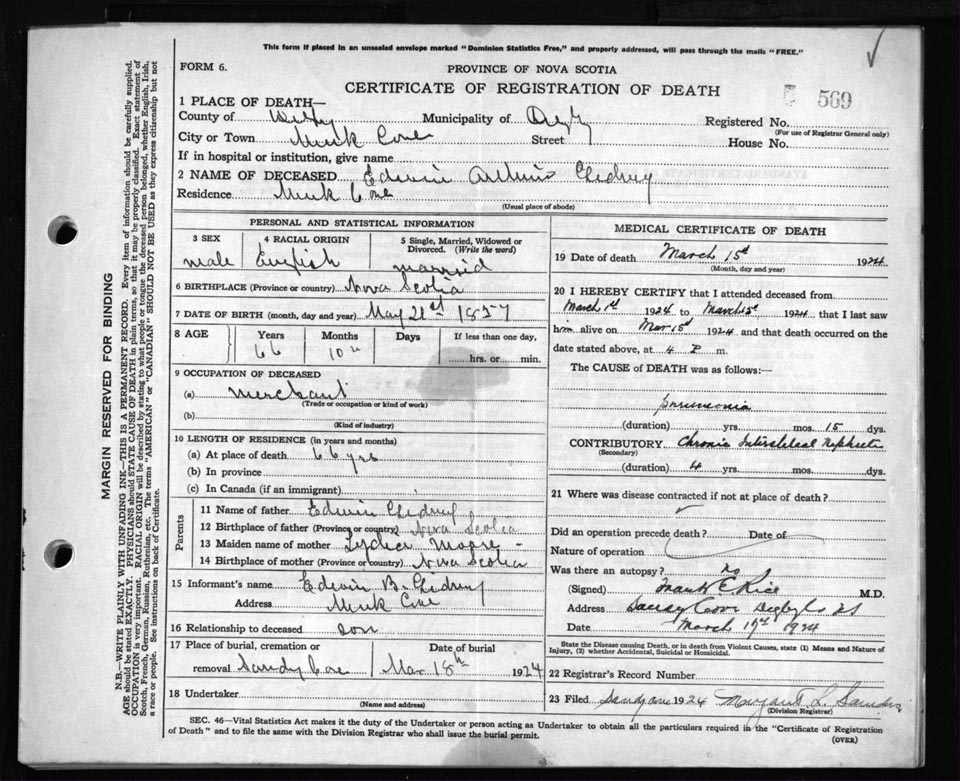 This form if placed in an unsealed envelope marked "Dominion Statistics Free," and properly addressed, will pass through the mails "FREE."
FORM 6.
PROVINCE OF NOVA SCOTIA
CERTIFICATE OF REGISTRATION OF DEATH
569
1 PLACE OF DEATH—
County of Digby Municipality of Digby Registered No.
(For use of Registrar General only)
City or Town Mink Cove Street House No.
If in hospital or institution, give name
2 NAME OF DECEASED Edwin
Residence Mink Cove
(Usual place of abode)
PERSONAL AND STATISTICAL INFORMATION
3 SEX 4 RACIAL ORIGIN 5 Single, Married, Widowed or Divorced. (Write the word)
male English married
6 BIRTHPLACE (Province or country) Nova Scotia
7 DATE OF BIRTH (month, day and year) May 21st 1857
8 AGE Years Months Days If less than one day,
66 10 hrs. or min.
9 OCCUPATION OF DECEASED
(a) merchant
(Trade or occupation or kind of work)
(b)
(Kind of industry)
10 LENGTH OF RESIDENCE (in years and months)
(a) At place of death 66 yrs
(b) In province
(c) In Canada (if an immigrant)
Parents
11 Name of father Edwin
12 Birthplace of father (Province or country) Nova Scotia
13 Maiden name of mother Lydia Moore
14 Birthplace of mother (Province or country) Nova Scotia
15 Informant's name Edwin B.
Address Mink Cove
16 Relationship to deceased son
17 Place of burial, cremation or Date of burial
removal Sandy Cove Mar 18th 1924
18 Undertaker
(Name and address)
MEDICAL CERTIFICATE OF DEATH
19 Date of death March 15th 1924
(Month, day and year)
20 I HEREBY CERTIFY that I attended deceased from
March 1st 1924 to March 15 1924, that I last saw
him alive on Mar 15th 1924 and that death occurred on the
date stated above, at 4 P m.
The CAUSE of DEATH was as follows:—
pneumonia
(duration) yrs. mos. 15 dys.
CONTRIBUTORY Chronic Interstitial Nephritis
(Secondary)
(duration) 4 yrs. mos. dys.
21 Where was disease contracted if not at place of death?
Did an operation precede death? Date of
Nature of operation
Was there an autopsy? no
(Signed) Frank E. Rice M.D.
Address Sandy Cove Digby Co NS
Date March 1924
State the Disease causing Death, or in death from Violent Causes, state (1) Means and Nature of
Injury, (2) whether Accidental, Suicidal or Homicidal.
22 Registrar's Record Number
23 Filed 1924 Margaret L. Saunders
(Division Registrar)
SEC. 46—Vital Statistics Act makes it the duty of the Undertaker or person acting as Undertaker to obtain all the particulars required in the "Certificate of Registration
of Death" and to file the same with the Division Registrar who shall issue the burial permit.
(OVER)
MARGIN RESERVED FOR BINDING
N.B.—WRITE PLAINLY WITH UNFADING INK—THIS IS A PERMANENT RECORD. Every item of information should be carefully supplied.
AGE should be stated EXACTLY. PHYSICIANS should STATE CAUSE OF DEATH in plain terms, so that it may be properly classified. Exact statement of
OCCUPATION is very important. RACIAL ORIGIN will be described by stating to what people or tongue the deceased person belonged, whether English, Irish,
Scotch, French, German, Russian, Ruthenian, etc. The terms "AMERICAN" or "CANADIAN" SHOULD NOT BE USED as they express citizenship but not
a race or people. See instructions on back of Certificate.